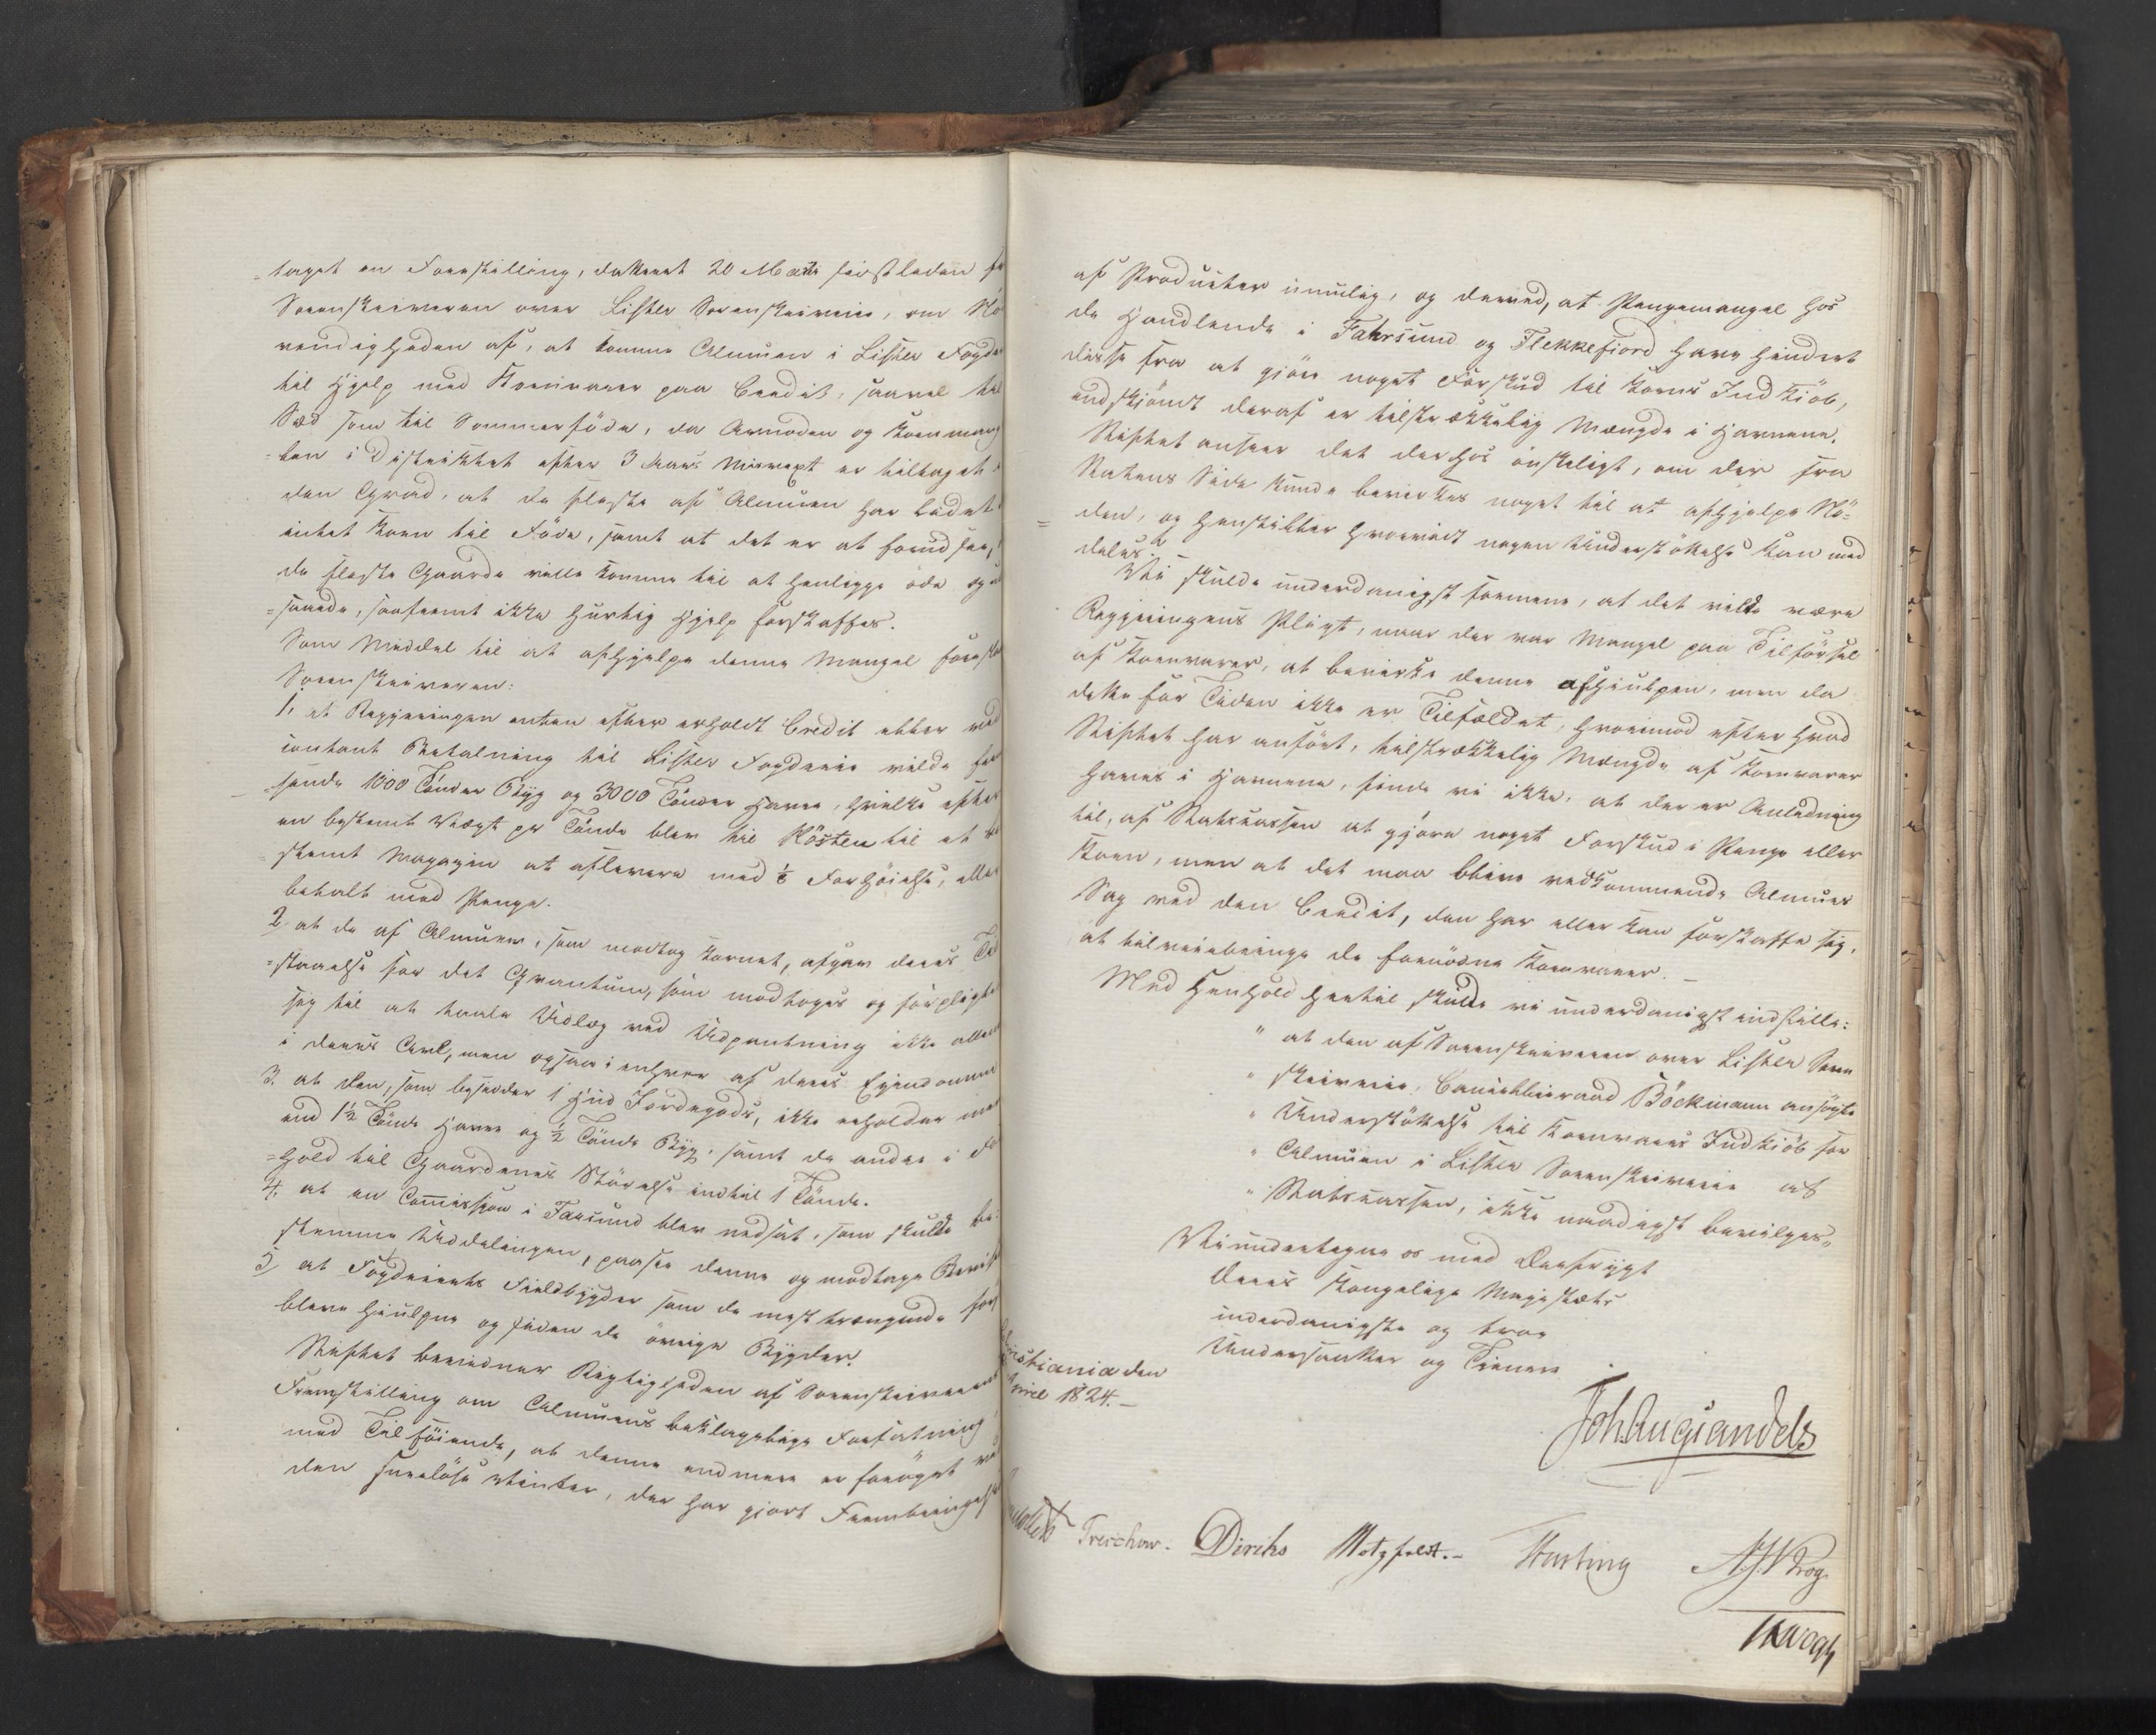 taget en Forestilling, dateret 20 Marti sidstleden fra
Sorenskriveren over Lister Sorenskriverie, om Nød-
vendigheden af, at komme Almuen i Lister Fogderie
til Hjelp med Kornvarer paa Credit, saavel til
Sæd som til Sommerføde, da Armoden og Kornmang-
len i Distriktet efter 3 Aars Misvext er tiltaget i
den Grad, at de fleste af Almuen har ladet
intet Korn til Føde, samt at det er at forudsee,
de fleste Gaarde ville komme til at henligge öde og u-
saaede, saafremt ikke hurtig Hjelp forskaffes.
Som Middel til at afhjelpe denne Mangel foreslaaer
Sorenskriveren:
1, at Regjeringen enten efter erholdt Credit eller ved
contant Betalning til Lister Fogderie vilde for-
sende 1000 Tönder Byg og 3000 Tönder Havre, hvilke efter
en bestemt Vægt pr Tönde blev til Hösten til et be-
stemt Magazin at aflevere med 1/8 Forhöielse, eller
betalt med Penge.
2 at de af Almuen, som modtog Kornet, afgav deres Til-
staaelse for det Qvantum, som modtoges og forpligte
sig til at taale Udlæg ved Udpantning ikke allene
i deres Avl, men ogsaa i enhver af deres Eiendomme
3. at Den, som besidder 1 Hud Jordegods, ikke erholder mere
end 1½ Tönde Havre og ½ Tönde Byg, samt de andre i For-
hold til Gaardenes Störelse indtil 1 Tönde.
4. at en Commission i Farsund blev nedsat, som skulde be-
stemme Uddelingen, paasee denne og modtage Beviser
5, at Fogderiets Fieldbygder som de mest trængende först
bleve hiulpne og siden de övrige Bygder.
Stiftet bevidner Rigtigheden af Sorenskriverens
Fremstilling om Almuens beklagelige Forfatning
med Tilföiende, at denne endmere er foröget ved
den sneelöse Vinter, der har gjort Frembringelse
af Producter umulig, og derved, at Pengemangel hos
de Handlende i Fahrsund og Flekkefiord have hindret
disse fra at gjöre noget Forskud til Korns Indkiöb,
endskjöndt deraf er tilstrækkelig Mængde i Havnene.
Stiftet anseer det derhos önskeligt, om der fra
Statens Side kunde bevirkes noget til at afhjelpe Nö-
den, og henstiller hvorvidt nogen Understöttelse kan med-
deles. –
Vi skulde underdanigst formene, at det vilde være
Regjeringens Pligt, naar der var Mangel paa Tilförsel
af Kornvarer, at bevirke denne afhiulpen, men da
dette for Tiden ikke er Tilfældet, hvorimod efter hvad
Stiftet har anfört, tilstrækkelig Mængde af Kornvarer
haves i Havnene, finde vi ikke, at der er Anledning
til, af Statscassen at gjöre noget Forskud i Penge eller
Korn, men at det maa blive vedkommende Almues
Sag ved den Credit, den har eller kan forskaffe sig,
at tilveiebringe de fornödne Kornvarer. –
Med Henhold hertil skulde vi underdanigst indstille:
" at den af Sorenskriveren over Lister Soren-
" skriverie, Cancelliraad Böckmann ansögte
" Understöttelse til Kornvarers Indkiöb for
" Almuen i Lister Sorenskriverie af
" Statscassen, ikke naadigst bevilges„
Vi undertegne os med Dybfrygt
Deres Kongelige Majestæts
underdanigste og troe
Undersaatter og Tienere
Christiania den
April 1824. –
Joh. Aug. Sandels
Collett Treschow. Diriks Motzfeldt. – Fasting A. J. V. Krog.